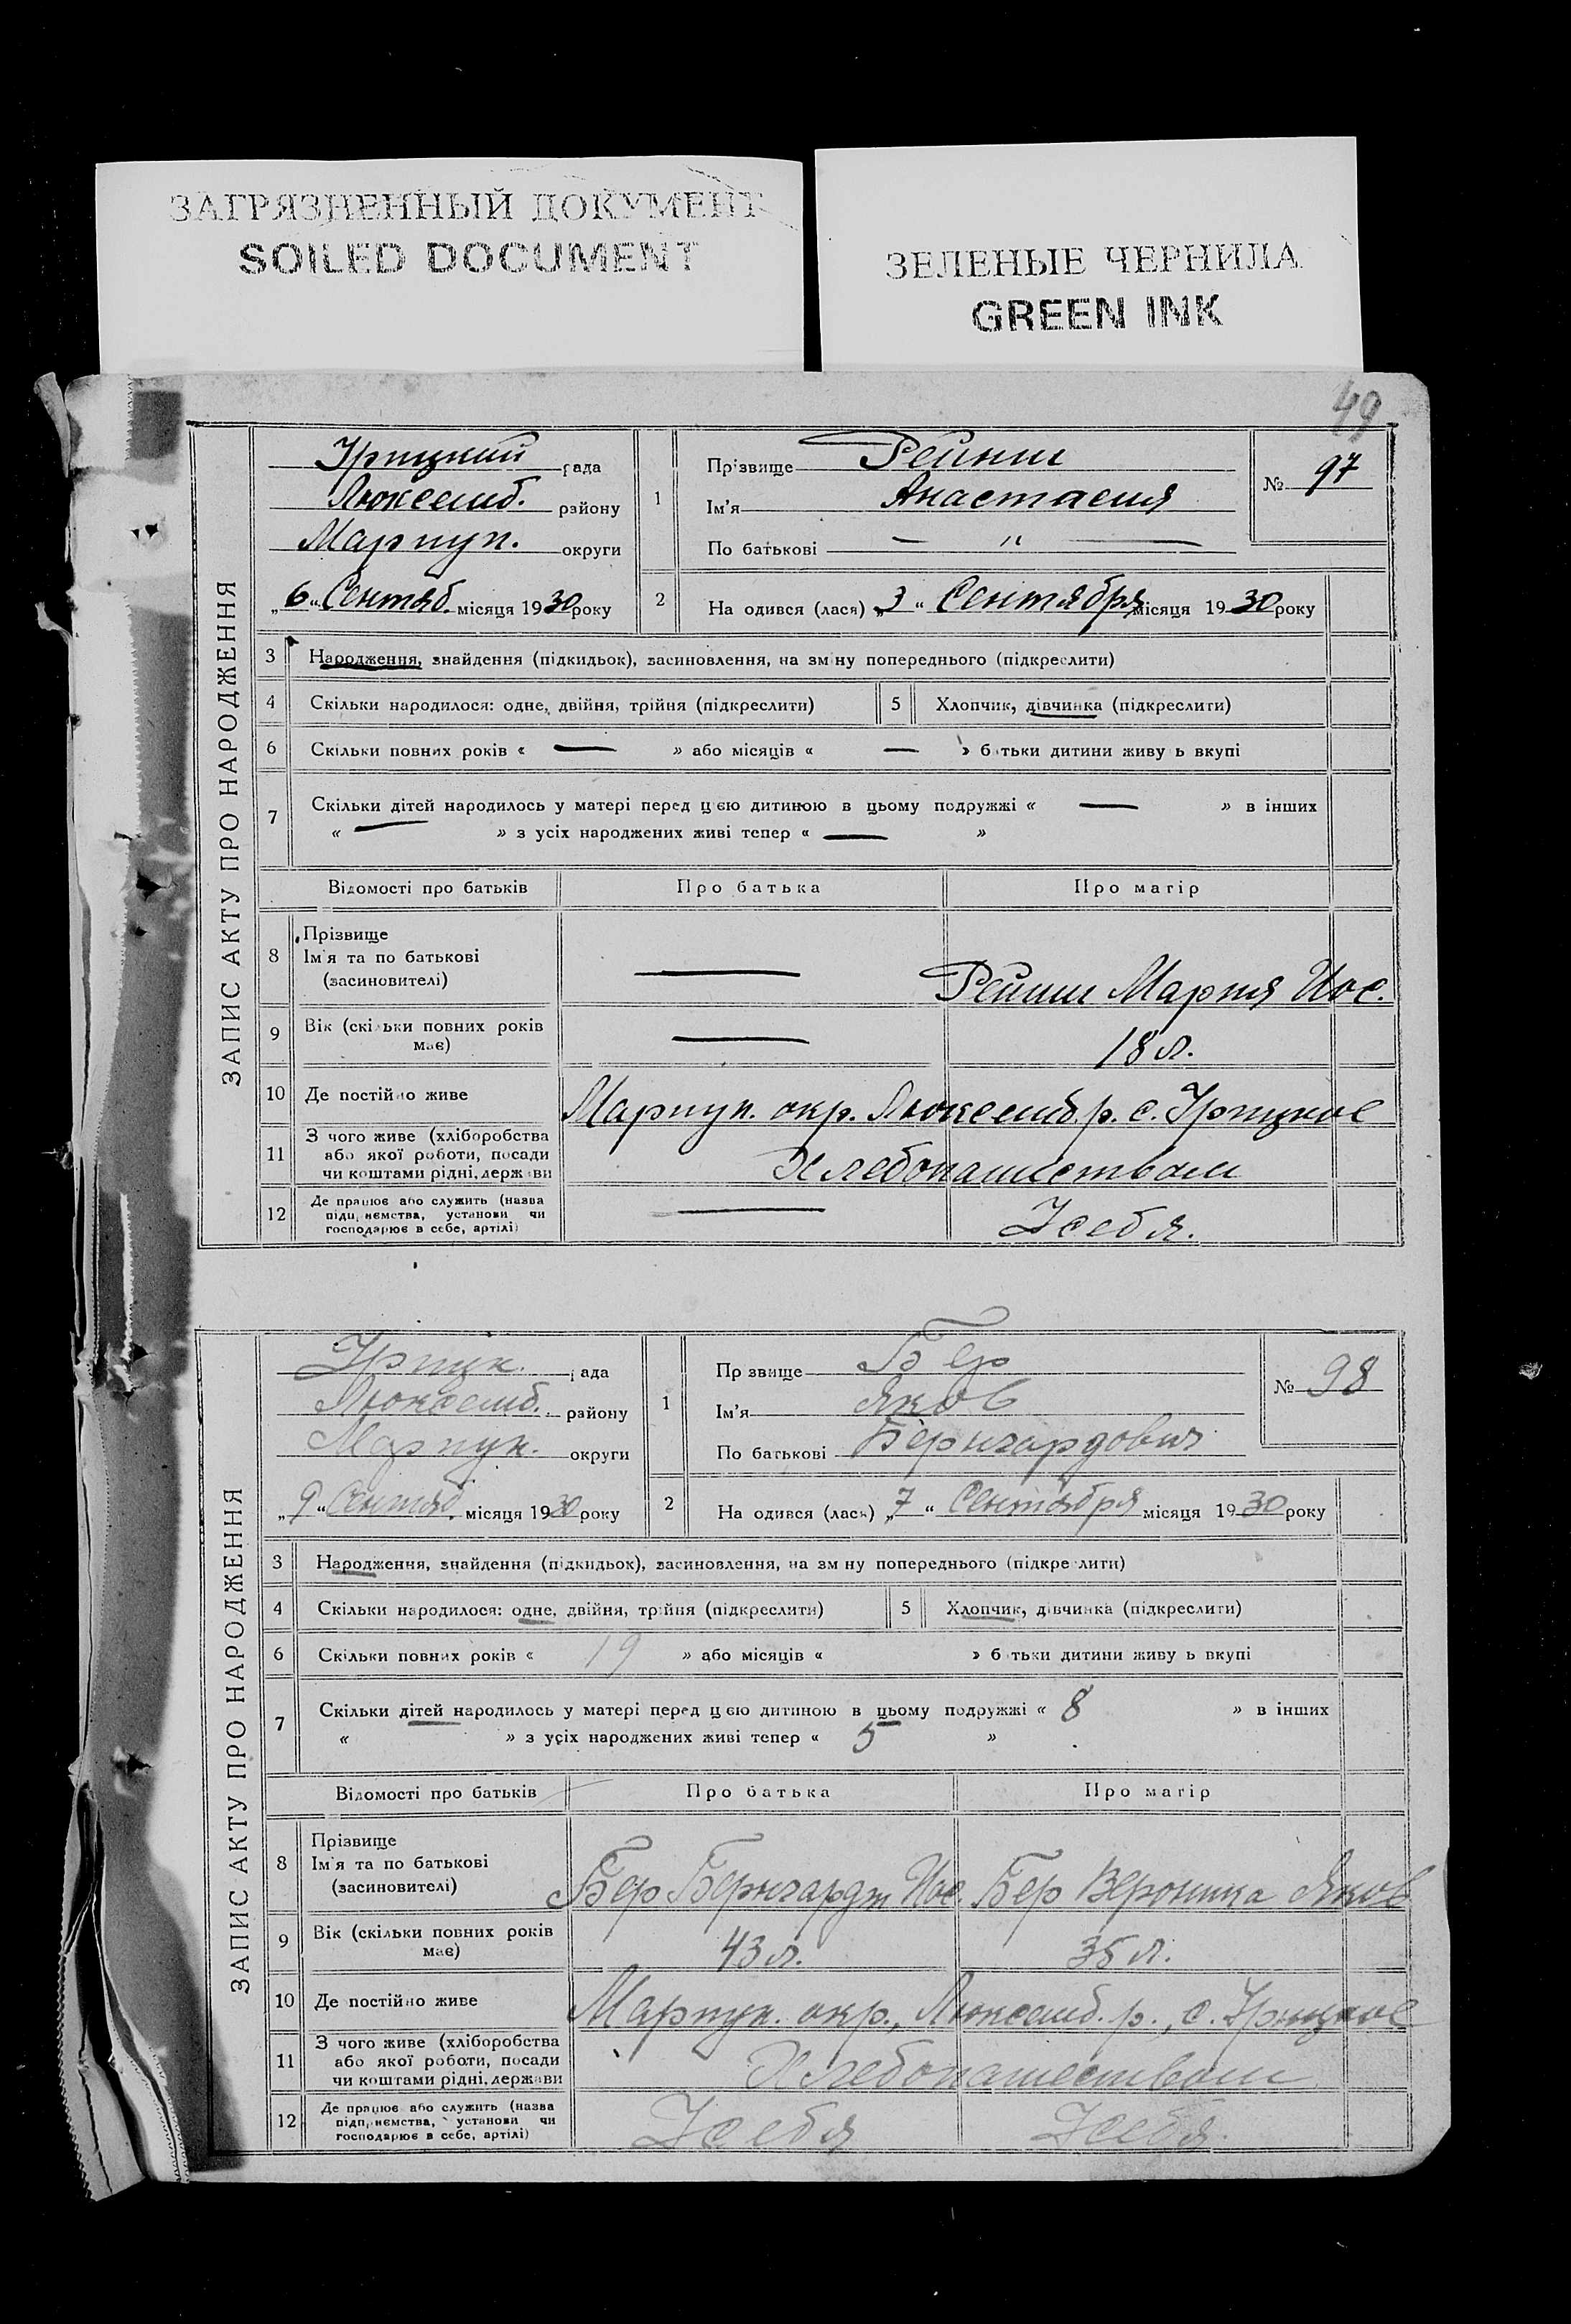 ЗАГРЯЗНЕННЫЙ ДОКУМЕНТ
SOILED DOCUMENT
ЗЕЛЕНЫЕ ЧЕРНИЛА
GREEN INK
49
ЗАПИС АКТУ ПРО НАРОДЖЕННЯ
Урицкий рада
Люксемб. району
Мариуп. округи
„6“ Сентяб. місяця 1930 року
1
Прізвище Рейнш
Ім'я Анастасия
По батькові — " —
№ 97
2 На одився (лася) „3“ Сентября місяця 1930 року
3 Народження, знайдення (підкидьок), засиновлення, на зм ну попереднього (підкреслити)
4 Скільки народилося: одне, двійня, трійня (підкреслити) 5 Хлопчик, дівчинка (підкреслити)
6 Скільки повних років « — » або місяців « — » б тьки дитини живу ь вкупі
7 Скільки дітей народилось у матері перед цією дитиною в цьому подружжі « — » в інших
« — » з усіх народжених живі тепер « — »
Відомості про батьків Про батька Про матір
8 Прізвище
Ім'я та по батькові
(засиновителі)
— Рейнш Мария Иос.
9 Вік (скільки повних років
має)
— 18 л.
10 Де постійно живе Мариуп. окр. Люксемб. р. с. Урицкое
11 З чого живе (хліборобства
або якої роботи, посади
чи коштами рідні, держави
Хлебопашеством
12 Де працює або служить (назва
підп, немства, установи чи
господарює в себе, артілі)
— У себя.
ЗАПИС АКТУ ПРО НАРОДЖЕННЯ
Урицк. рада
Люксемб. району
Мариуп. округи
„9“ Сентяб. місяця 1930 року
1
Пр звище Бер
Ім'я Яков
По батькові Бернгардович
№ 98
2 На одився (лась) „7“ Сентября місяця 1930 року
3 Народження, знайдення (підкидьок), засиновлення, на зм ну попереднього (підкре лити)
4 Скільки народилося: одне, двійня, трійня (підкреслити) 5 Хлопчик, дівчинка (підкреслити)
6 Скільки повних років « 19 » або місяців « » б тьки дитини живу ь вкупі
7 Скільки дітей народилось у матері перед цією дитиною в цьому подружжі « 8 » в інших
« » з усіх народжених живі тепер « 5 »
Відомості про батьків Про батька Про матір
8 Прізвище
Ім'я та по батькові
(засиновителі)
Бер Бернгардт Иос. Бер Вероника Яков
9 Вік (скільки повних років
має)
43 л. 35 л.
10 Де постійно живе Мариуп. окр., Люксемб. р., с. Урицкое
11 З чого живе (хліборобства
або якої роботи, посади
чи коштами рідні, держави
Хлебопашеством
12 Де працює або служить (назва
підпр, немства, установи чи
господарює в себе, артілі)
У себя У себя.